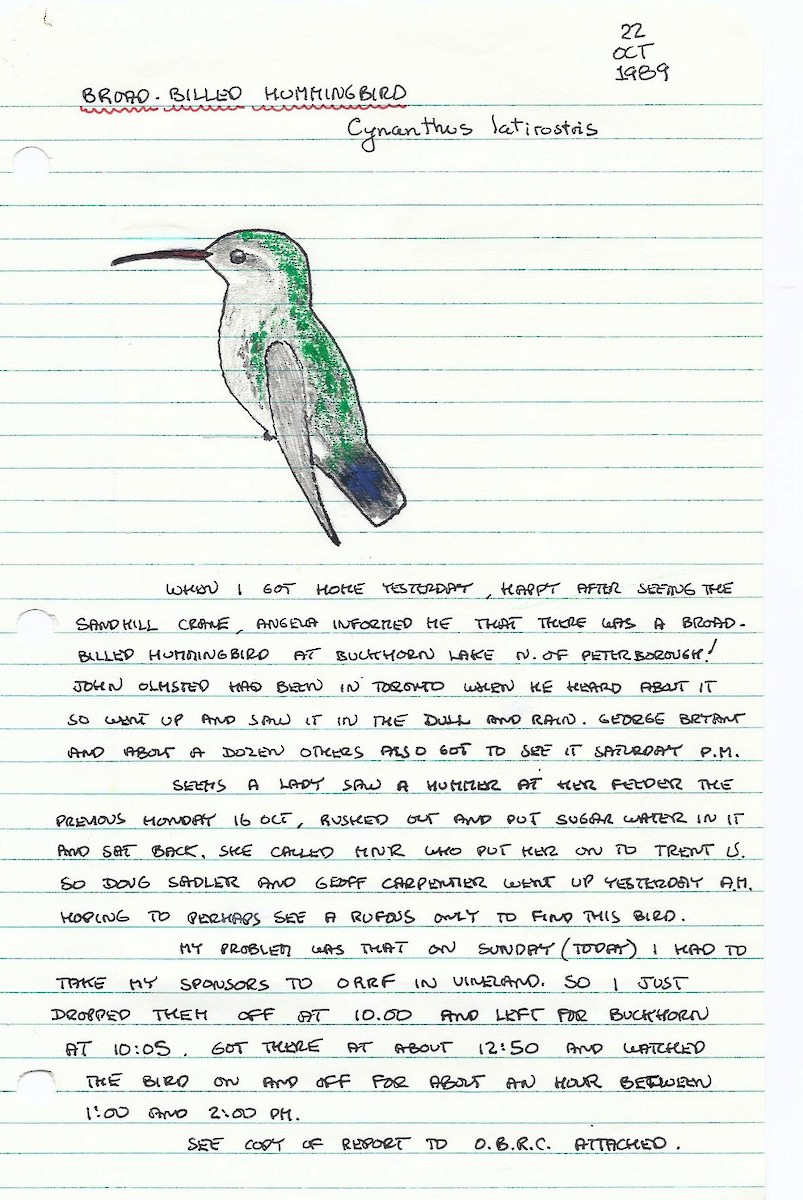 22
OCT
1989
BROAD-BILLED HUMMINGBIRD
Cynanthus latirostris
WHEN I GOT HOME YESTERDAY, HAPPY AFTER SEEING THE
SANDHILL CRANE, ANGELA INFORMED ME THAT THERE WAS A BROAD-
BILLED HUMMINGBIRD AT BUCKHORN LAKE N. OF PETERBOROUGH!
JOHN OLMSTED HAD BEEN IN TORONTO WHEN HE HEARD ABOUT IT
SO WENT UP AND SAW IT IN THE DULL AND RAIN. GEORGE BRYANT
AND ABOUT A DOZEN OTHERS ALSO GOT TO SEE IT SATURDAY P.M.
SEEMS A LADY SAW A HUMMER AT HER FEEDER THE
PREVIOUS MONDAY 16 OCT, RUSHED OUT AND PUT SUGAR WATER IN IT
AND SAT BACK. SHE CALLED MNR WHO PUT HER ON TO TRENT U.
SO DOUG SADLER AND GEOFF CARPENTIER WENT UP YESTERDAY A.M.
HOPING TO PERHAPS SEE A RUFOUS ONLY TO FIND THIS BIRD.
MY PROBLEM WAS THAT ON SUNDAY (TODAY) I HAD TO
TAKE MY SPONSORS TO ORRF IN VINELAND. SO I JUST
DROPPED THEM OFF AT 10.00 AND LEFT FOR BUCKHORN
AT 10:05. GOT THERE AT ABOUT 12:50 AND WATCHED
THE BIRD ON AND OFF FOR ABOUT AN HOUR BETWEEN
1:00 AND 2:00 PM.
SEE COPY OF REPORT TO O.B.R.C. ATTACHED.